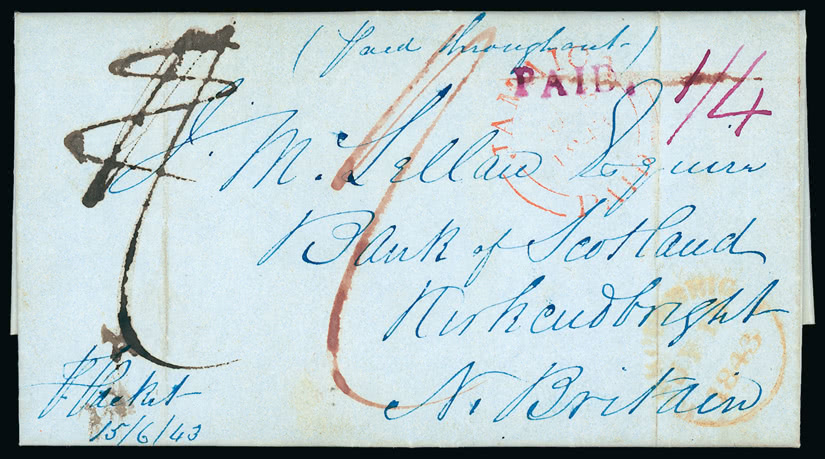 (Paid throughout)
PAID.
1/4
JAMAICA
PAID
J. McLellan Esquire
Bank of Scotland
Kirkcudbright
N. Britain
1843
P Packet
15/6/43